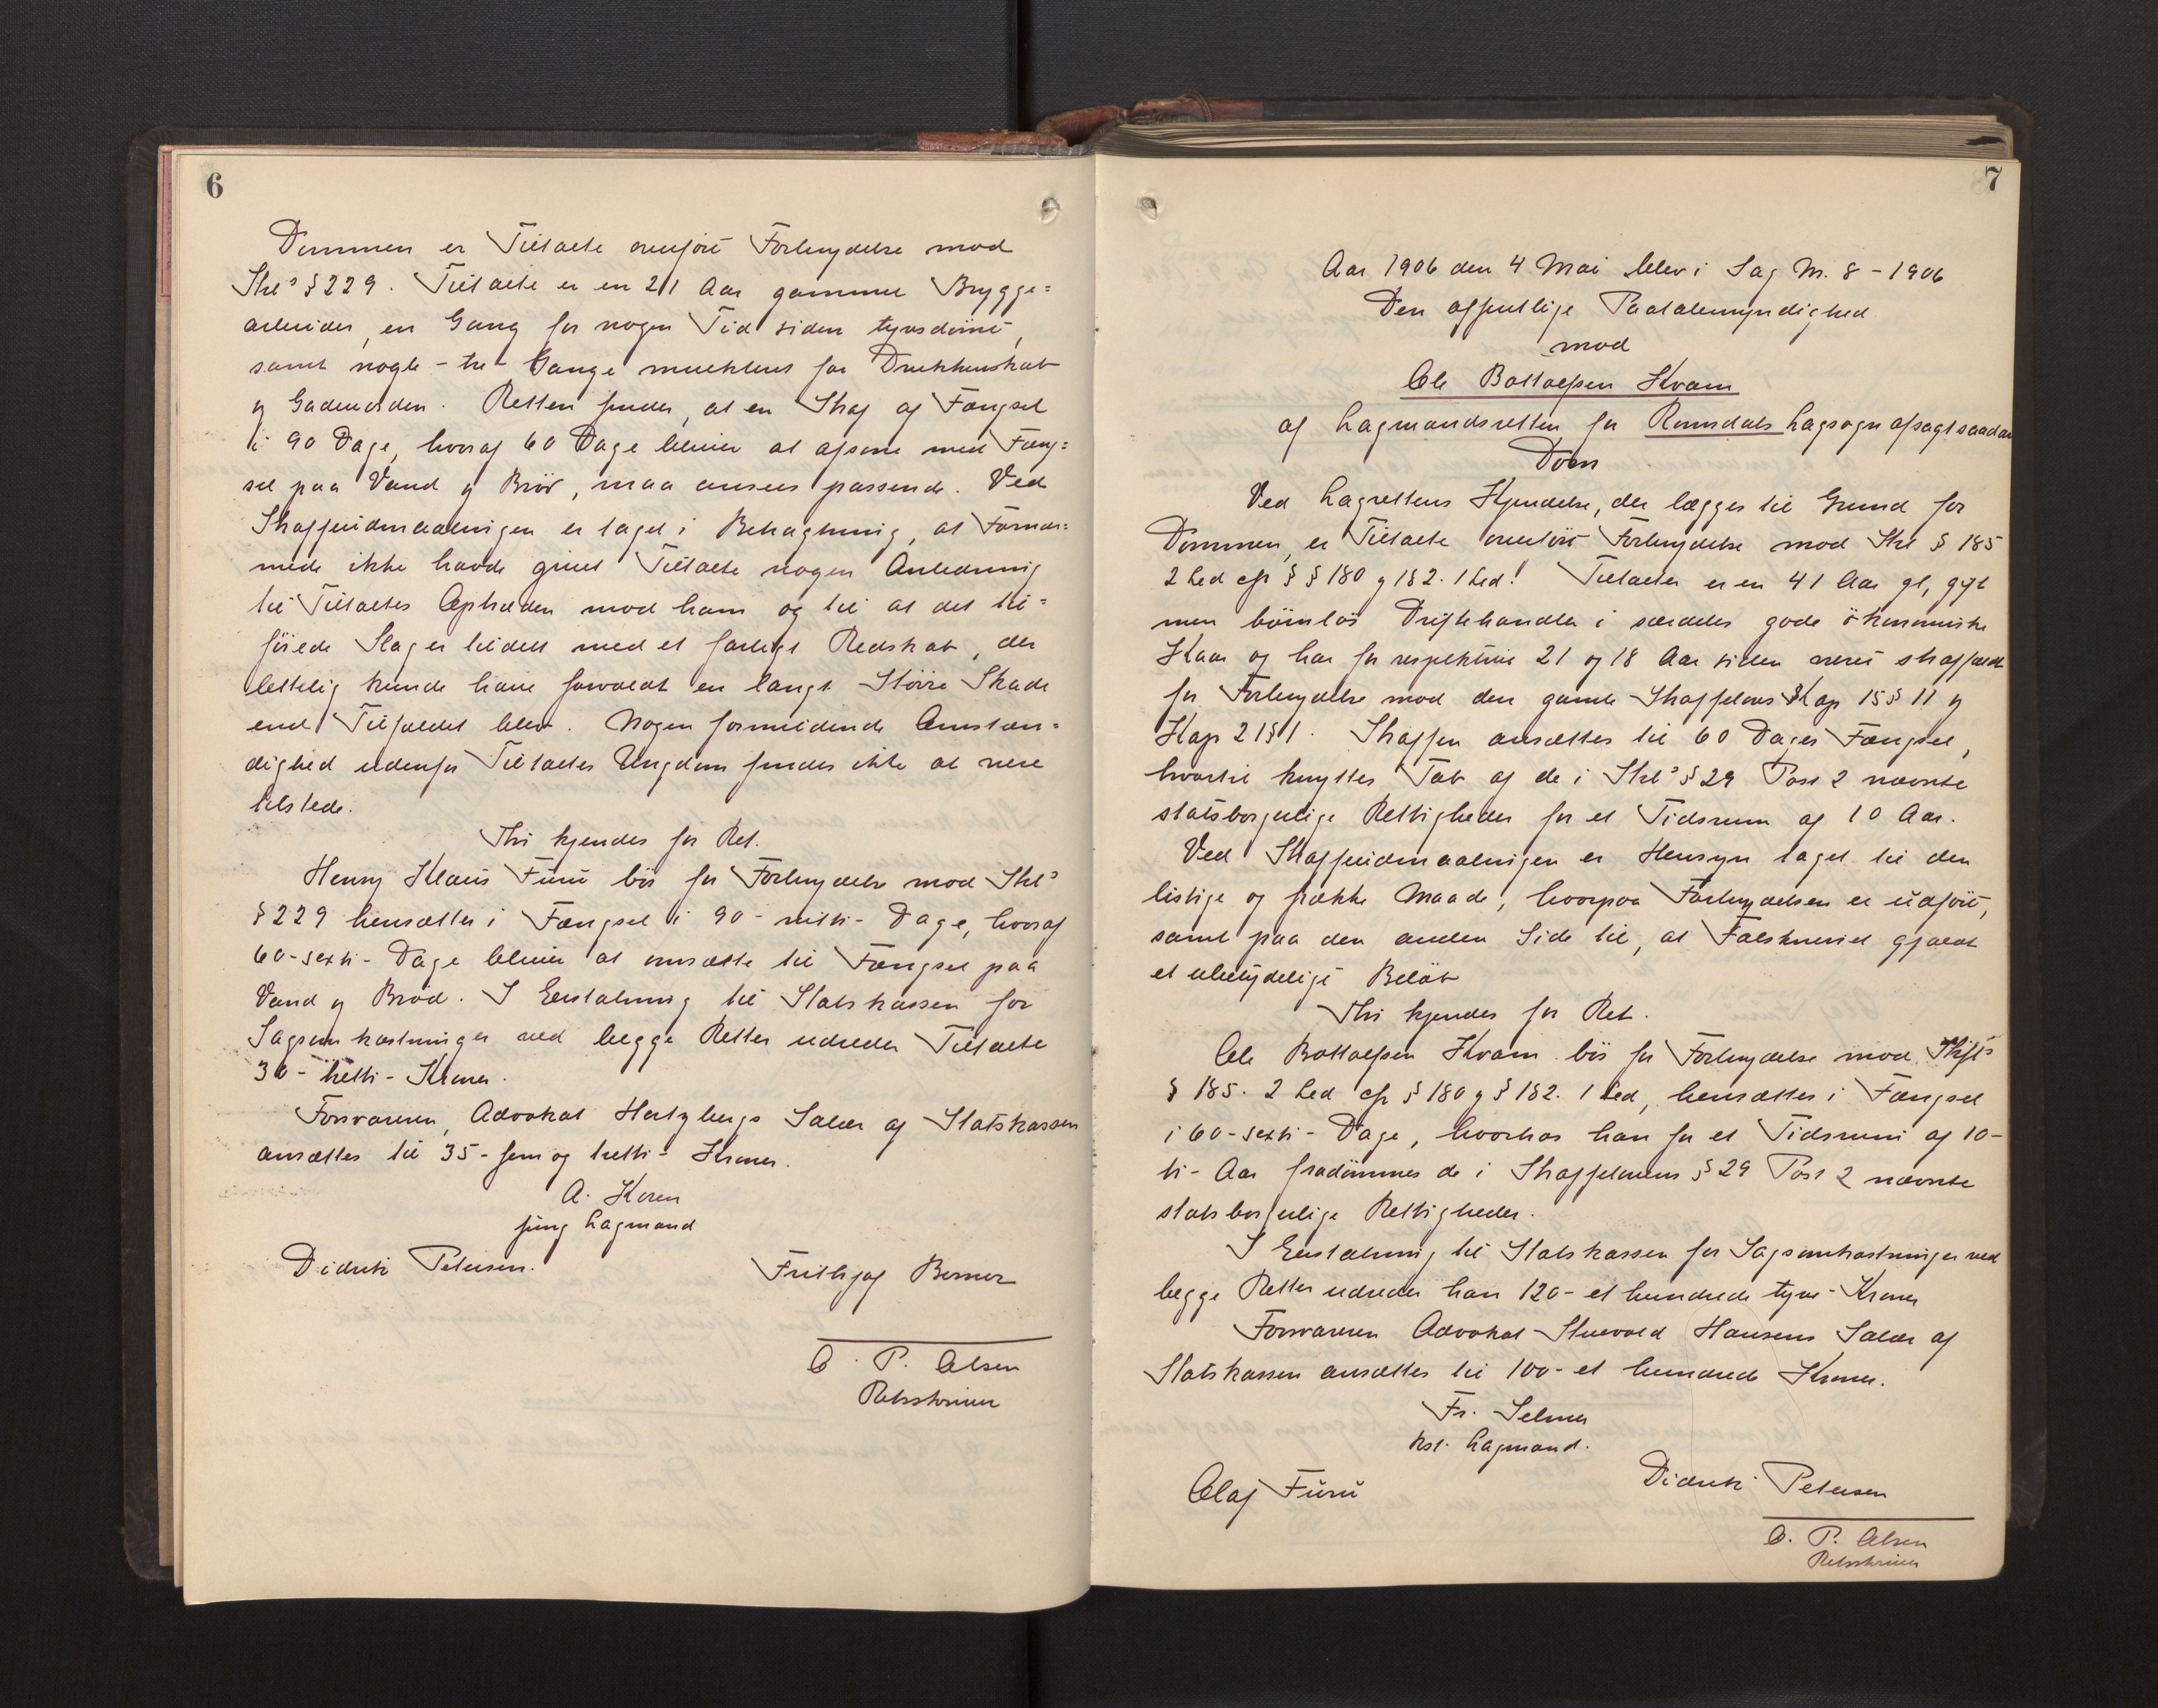 6
Dommen er Tiltalte overført Forbrydelse mod
Strl's § 229. Tiltalte er en 21 Aar gammel Brygge=
arbeider, en Gang for nogen Tid siden tyvsdømt,
samt nogle - tre Gange mulkteret for Drukkenskab
og Gadeuorden. Retten finder, at en Straf af Fængsel
i 90 Dage, hvoraf 60 Dage bliver at afsone med Fæng=
sel paa Vand og Brød, maa ansees passende. Ved
Straffeudmaalingen er taget i Betragtning, at Fornær=
mede ikke havde givet Tiltalte nogen Anledning
til Tiltaltes Optræden mod ham og til at det til=
føiede Slag er tildelt med et farligt Redskab, der
lettelig kunde have forvoldt en langt større Skade
end Tilfældet blev. Nogen formildende Omstæn=
dighed udenfor Tiltaltes Ungdom findes ikke at være
tilstede.
Thi kjendes for Ret.
Henry Klaus Furu bør for Forbrydelse mod Strl's
§ 229 hensættes i Fængsel i 90 - nitti - Dage, hvoraf
60 - sexti - Dage bliver at omsætte til Fængsel paa
Vand og Brød. I Erstatning til Statskassen for
Sagsomkostninger ved begge Retter udreder Tiltalte
30 - tretti - Kroner.
Forsvareren, Advokat Hertzbergs Salær af Statskassen
ansættes til 35 - fem og tretti - Kroner.
A. Koren
fung Lagmand
Didrik Petersen. Frithjof Berner
O. P. Olsen
Retsskriver
7
Aar 1906 den 4 Mai blev i Sag Nr. 8 - 1906
Den offentlige Paatalemyndighed
mod
Ole Bottolfsen Kvam
af Lagmandsretten for Romsdals Lagsogn afsagt saadan
Dom
Ved Lagrettens Kjendelse, der lægges til Grund for
Dommen, er Tiltalte overført Forbrydelse mod Strl § 185
2 Led cfr § § 180 og 182. 1 Led! Tiltalte er en 41 Aar gl, gift
men børnløs Driftehandler i særdeles gode økonomiske
Kaar og har for respektive 21 og 18 Aar siden været straffældt
for Forbrydelse mod den gamle Straffelovs Kap 15 § 11 og
Kap 21 § 1. Straffen ansættes til 60 Dages Fængsel,
hvortil knyttes Tab af de i Strl's § 29 Post 2 nævnte
statsborgerlige Rettigheder for et Tidsrum af 10 Aar.
Ved Straffeudmaalingen er Hensyn taget til den
listige og frække Maade, hvorpaa Forbrydelsen er udført,
samt paa den anden Side til, at Falskneriet gjaldt
et ubetydeligt Beløb
Thi kjendes for Ret.
Ole Bottolfsen Kvam bør for Forbrydelse mod
§ 185. 2 Led cfr § 180 og § 182. 1 Led, hensættes i Fængsel
i 60 - sexti - Dage, hvorhos han for et Tidsrum af 10 -
ti - Aar fradømmes de i Straffelovens § 29 Post 2 nævnte
statsborgerlige Rettigheder.
I Erstatning til Statskassen for Sagsomkostninger ved
begge Retter udreder han 120 - et hundrede tyve - Kroner
Forsvareren Advokat Hansens Salær af
Statskassen ansættes til 100 - et hundrede Kroner.
Fr. Selmer
kst. Lagmand.
Olaf Furu Didrik Petersen
O. P. Olsen
Retsskriver